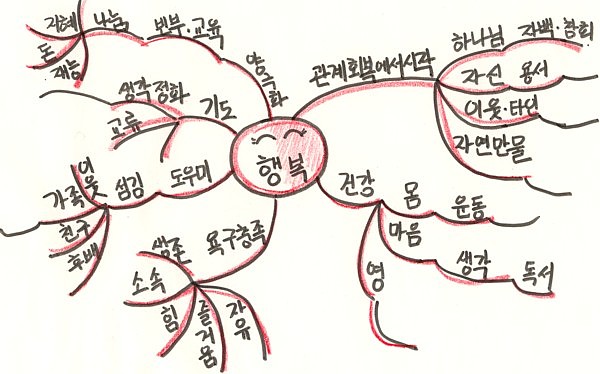 행복
관계회복에서시작
하나님 자백·참회
자신 용서
이웃·타인
자연만물
건강
몸 운동
마음 생각 독서
영
욕구충족
생존
소속
힘
즐거움
자유
도우미
섬김
이웃
가족
친구
후배
기도
생각정화
교류
양극화
빈부·교육
나눔
지혜
돈
재능